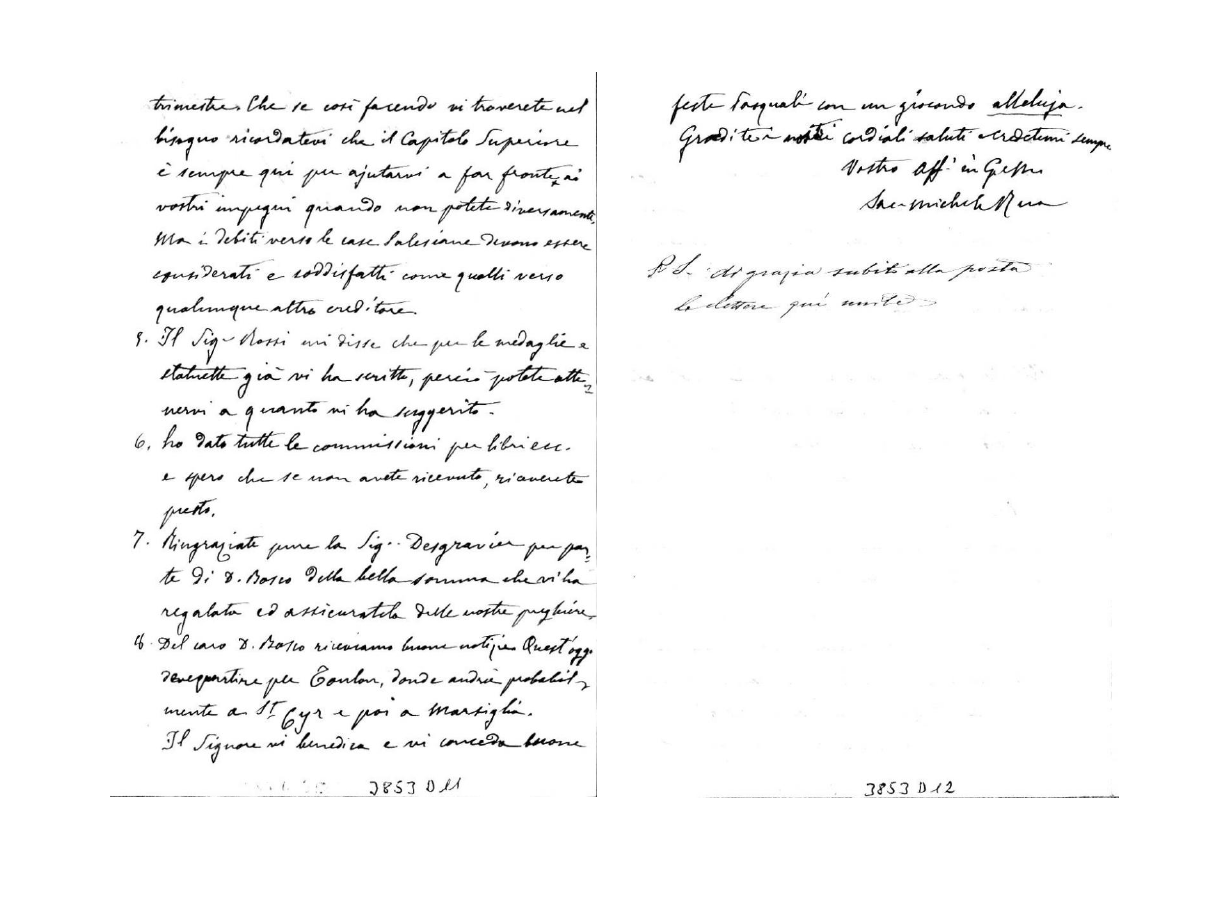 trimestre. Che se così facendo vi troverete nel
bisogno ricordatevi che il Capitolo Superiore
è sempre qui per ajutarvi a far fronte ai
vostri impegni quando non potete diversamente.
Ma i debiti verso le case Salesiane devono essere
considerati e soddisfatti come quelli verso
qualunque altro creditore.
5. Il Sigr Rossi mi disse che per le medaglie e
statuette già vi ha scritto, perciò potete atte=
nervi a quanto vi ha suggerito.
6. ho dato tutte le commissioni per libri ecc.
e spero che se non avete ricevuto, riceverete
presto.
7. Ringraziate pure la Sig.. Desgravier per par=
te di D. Bosco della bella somma che vi ha
regalata ed assicuratela delle nostre preghiere.
8. Del caro D. Bosco riceviamo buone notizie. Quest'oggi
deve partire per Toulon, donde andrà probabil=
mente a St. Cyr e poi a Marsiglia.
Il Signore vi benedica e vi conceda buone
3853 D 11
feste Pasquali con un giocondo alleluja.
Gradite i nostri cordiali saluti e credetemi sempre
Vostro Aff. in G
Sac. Michele Rua
P. S. di grazia subito alla posta
le lettere qui unite
3853 D 12